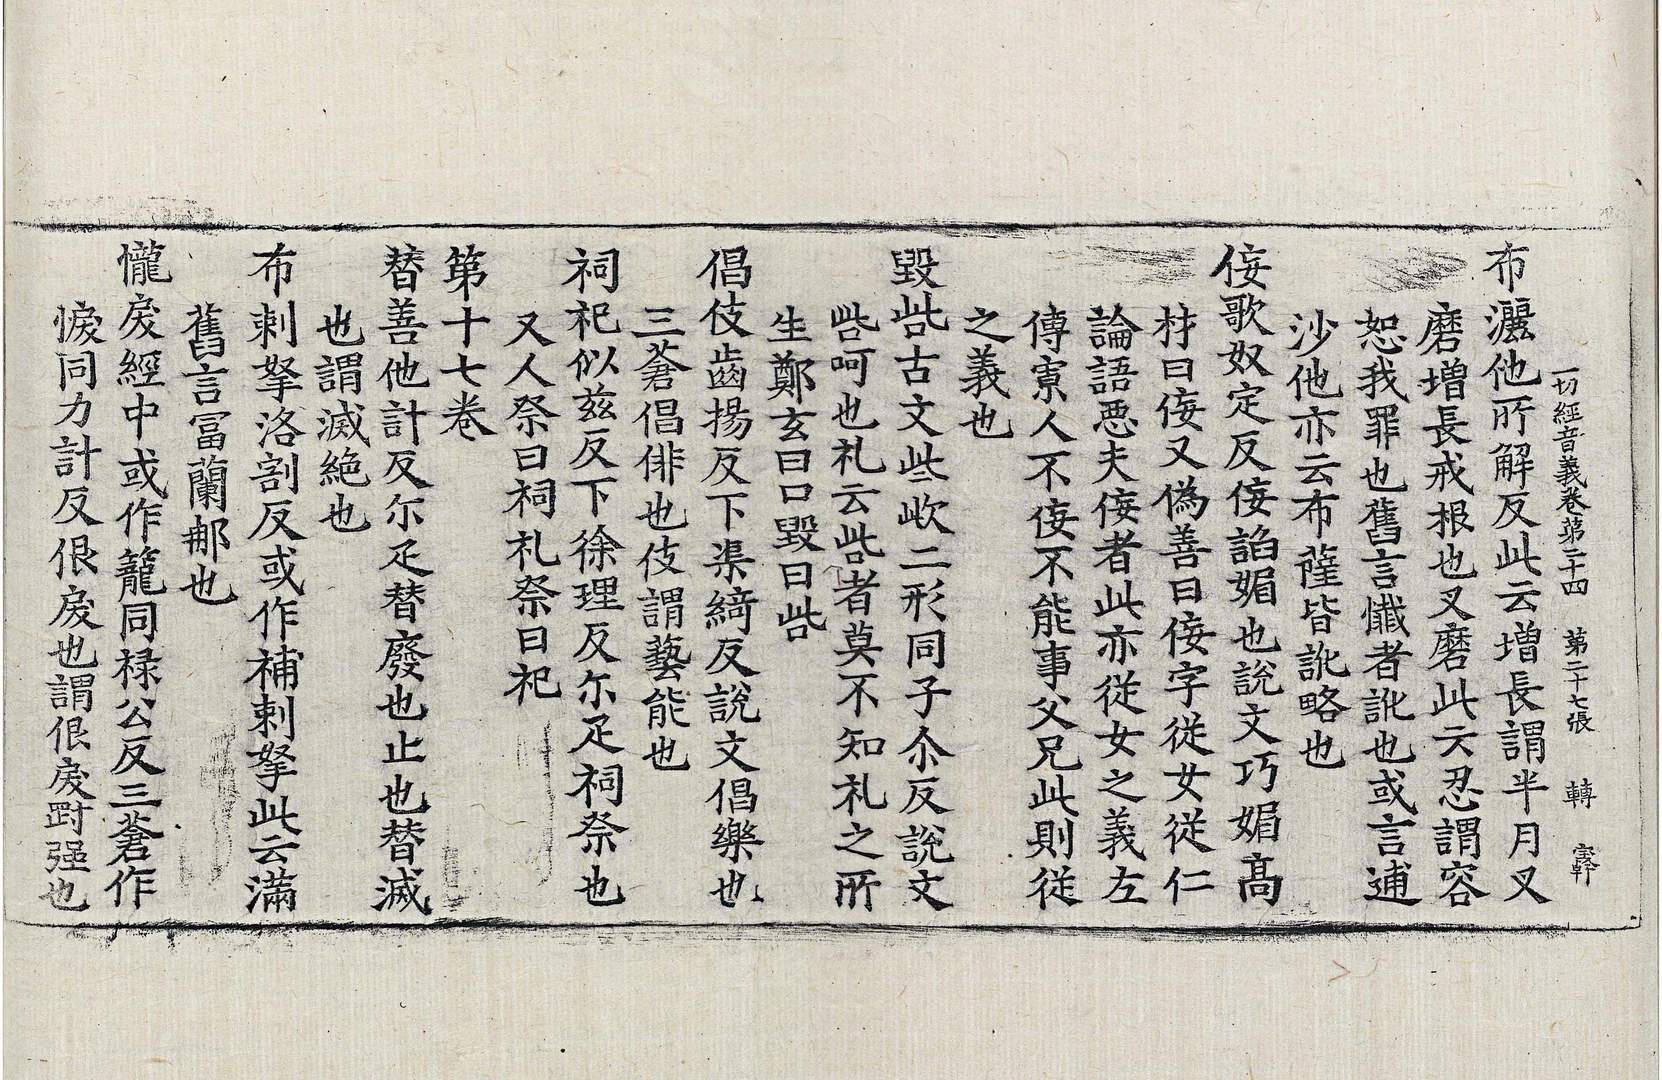 一切經音義卷第二十四 第二十七張 轉 寧幹
布灑他所解反此云增長謂半月叉
磨增長戒根也叉磨此云忍謂容
恕我罪也舊言懺者訛也或言逋
沙他亦云布薩皆訛略也
侫歌奴定反侫諂媚也說文巧媚高
材曰侫又偽善曰侫字從女從仁
論語惡夫侫者此亦從女之義左
傳寡人不侫不能事父兄此則從
之義也
毀呰古文些欰二形同子尒反說文
呰呵也礼云呰者莫不知礼之所
生鄭玄曰口毀曰呰
倡伎齒揚反下渠綺反說文倡樂也
三蒼倡俳也伎謂藝能也
祠祀似兹反下徐理反尒疋祠祭也
又人祭曰祠礼祭曰祀
第十七卷
替善他計反尒疋替廢也止也替滅
也謂滅絶也
布剌拏洛割反或作補剌拏此云滿
舊言冨蘭那也
懺戾經中或作籠同禄公反三蒼作
悷同力計反很戾也謂很戾㓰强也